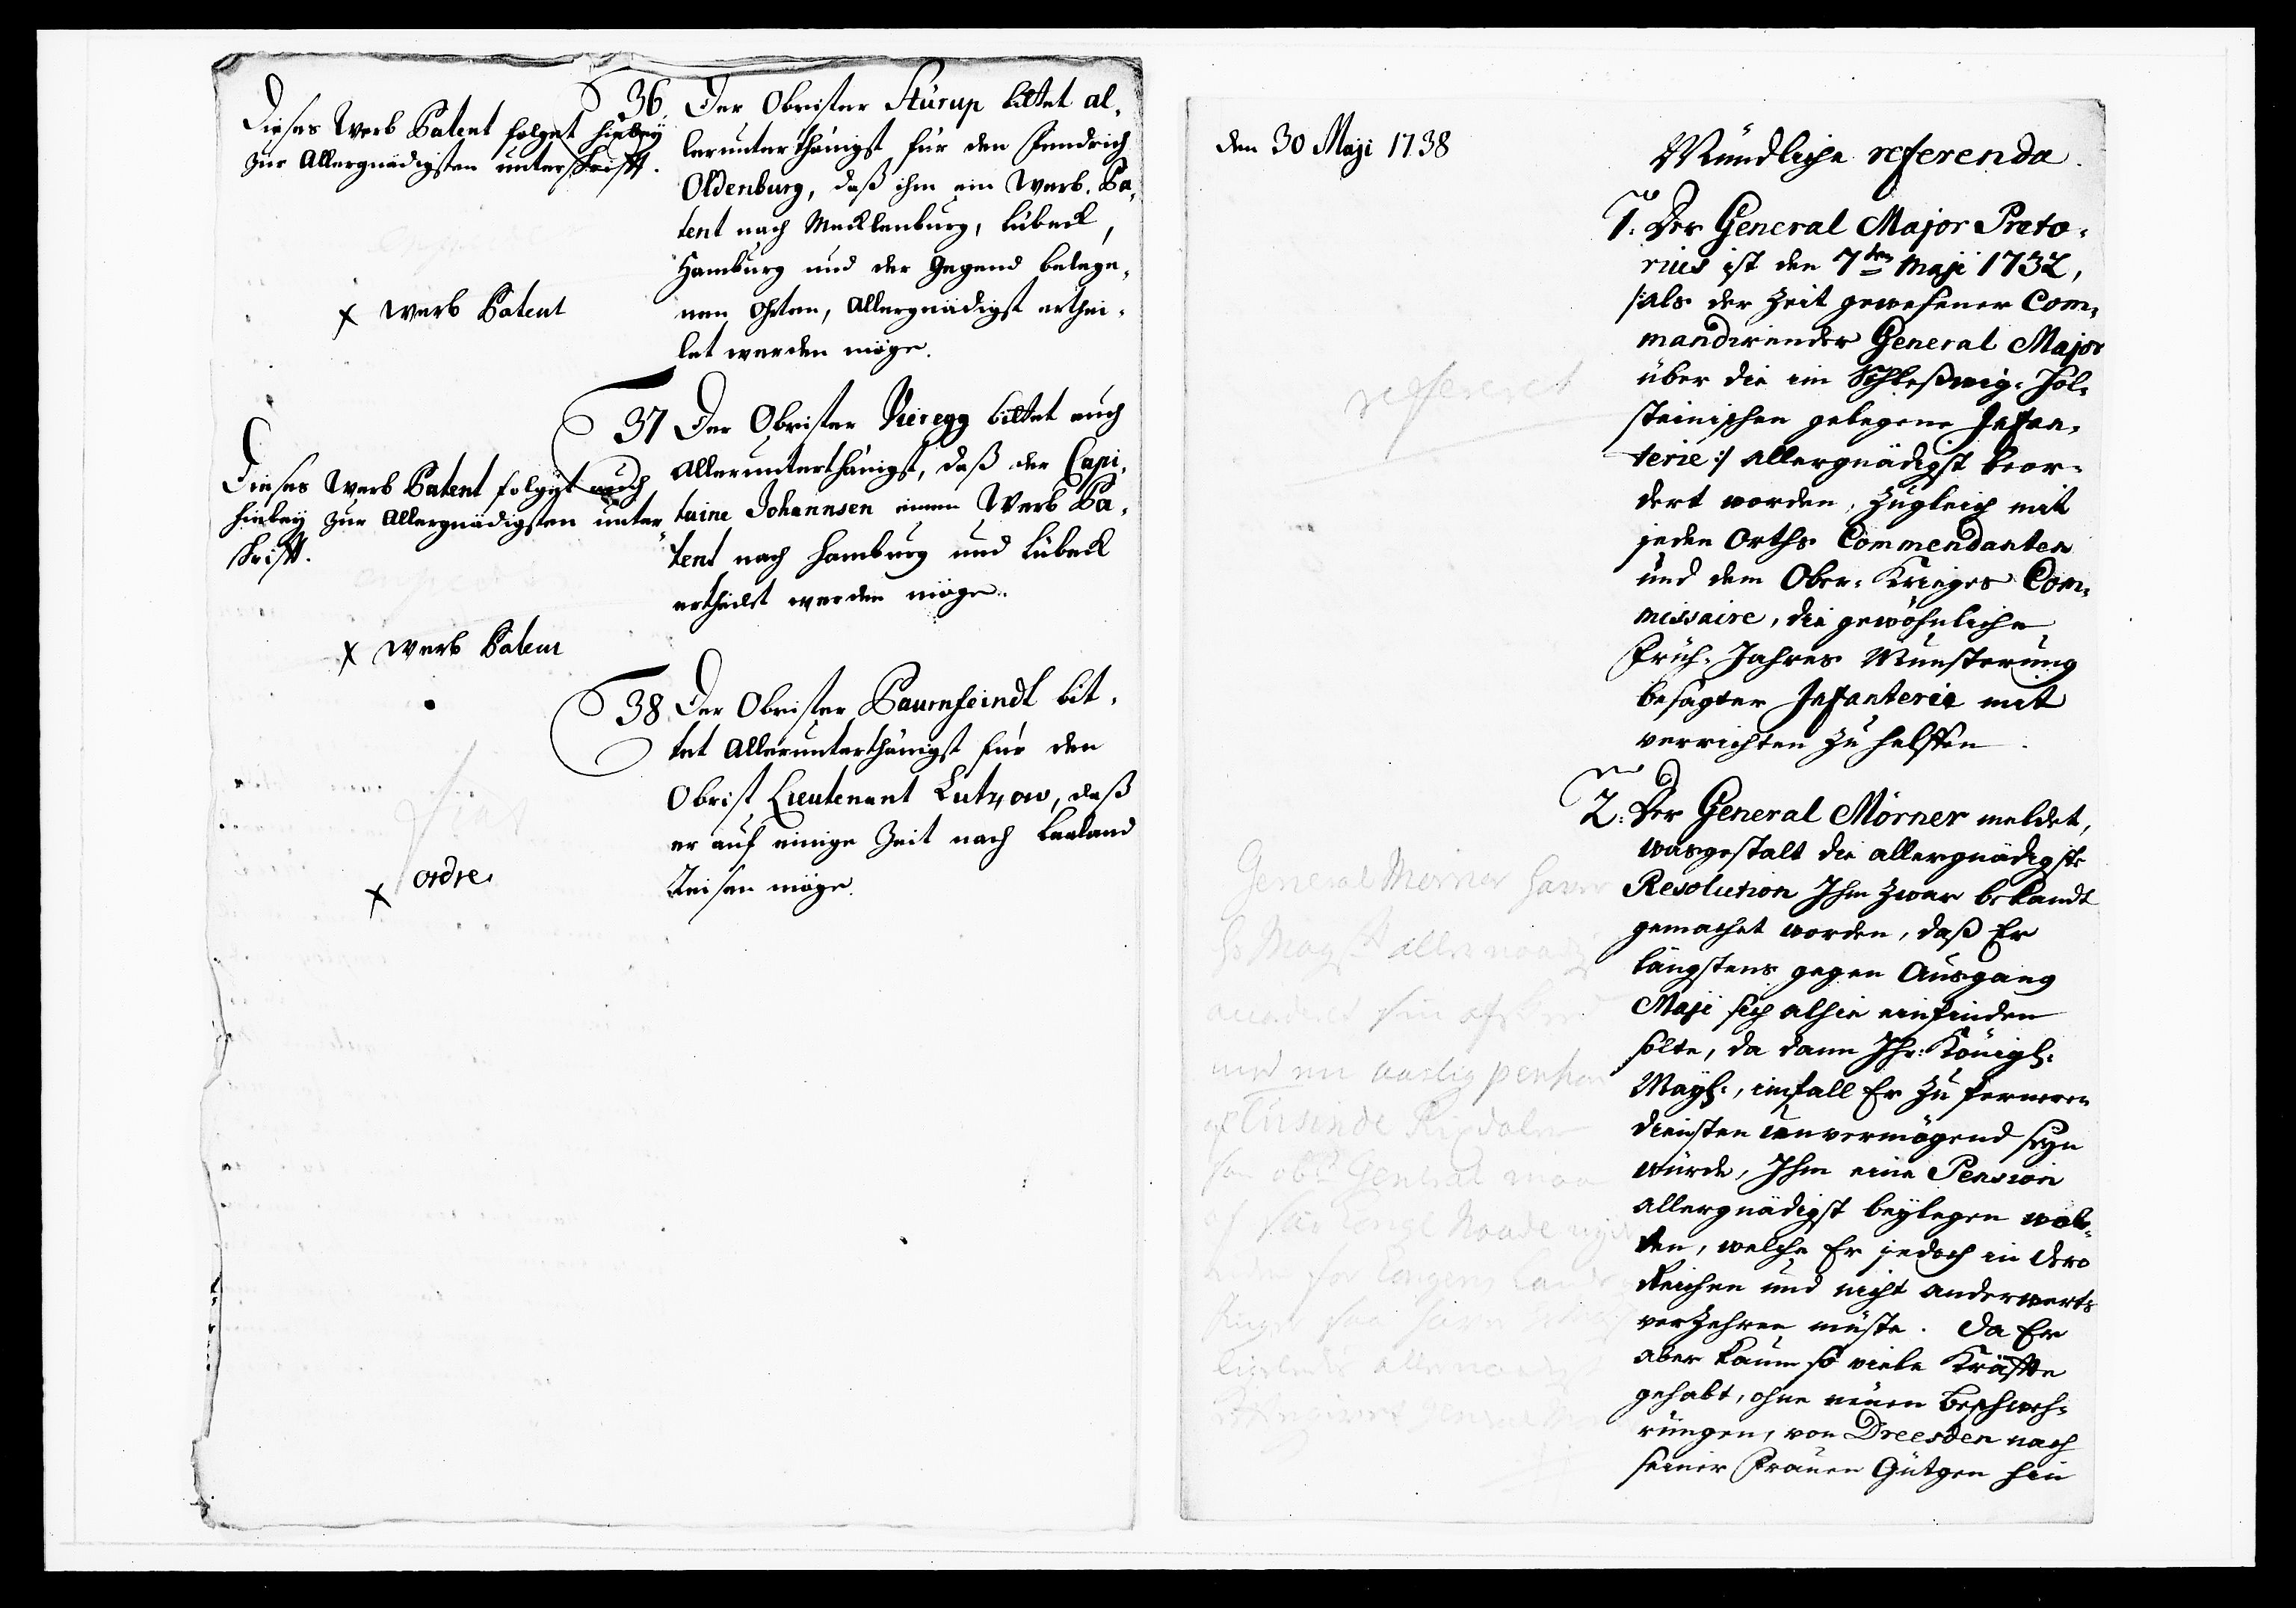 Dieses Werb Patent folget hiebey
zur Allergnädigsten unterschrifft.
x Werb Patent
36. Der Obrister Stürup bittet al-
lerunterthänigst für den Fendrich
Oldenburg, daß ihm ein Werb-Pa-
tent nach Mecklenburg, Lübeck,
Hamburg und der Gegend belege-
nen Ohrten, Allergnädigst erthei-
let werden möge.
Dieses Werb Patent folget auch
hiebey zur Allergnädigsten unter
schrifft.
x Werb Patent
37 Der Obrister Vieregg bittet auch
Allerunterthänigst, daß der Capi-
taine Johannsen einen Werb Pa-
tent nach Hamburg und Lübeck
ertheilet werden möge.
fiat
x ordre
38 Der Obrister Baurnfeindt bit-
tet Allerunterthänigst für den
Obrist Lieutenant Lutzow, daß
er auf einige Zeit nach Laaland
Reisen möge.
den 30 Maji 1738
Mündliche referenda.
refereret
1. Der General Major Preto-
rius ist den 7ten Maji 1732,
/:als der Zeit gewesener Com-
mandirender General Major
über die im Schleßwig-Hol-
steinischen gelegene Infan-
terie:/ allergnädigst beor-
dert worden, zugleich mit
jeden Orths Commendanten
und dem Ober-Krieges Com-
missaire, die gewöhnliche
Früh-Jahres Munsterung
besagter Infanterie mit
verrichten zu helffen.
General Mörner haver
2. Der General Mörner meldet,
wasgestalt die allergnädigste
Resolution Ihm zwar bekandt
gemachet worden, daß Er
längstens gegen Ausgang
Maji sich alhie einfinden
solte, da dann Ihr: Königl:
Mayt:, imfall Er zu ferneren
diensten unvermögend seyn
würde, Ihm eine Pension
allergnädigst beylegen wol-
ten, welche Er jedoch in dero
Reichen und nicht anderwerts
verzehren müste. Da Er
aber kaum so viele Kräffte
gehabt, ohne neuen Beschweh-
rungen, von Dreesden nach
seiner Frauen Gütgen hin